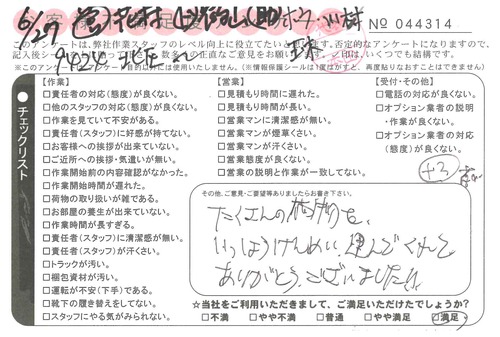 6/29
No 044314
このアンケートは、弊社作業スタッフのレベル向上に役立てたいと
否定的なアンケートになりますので、
記入後シー
数多くの正直なご意見をお願い
いつでも結構です。
※このアンケートは
目的以外には使用いたしません。(※情報保護シールは1度はがすと、再度貼りなおすことはできません)
チェックリスト
【作業】
□責任者の対応(態度)が良くない。
□他のスタッフの対応(態度)が良くない。
□作業を見ていて不安がある。
□責任者(スタッフ)に好感が持てない。
□お客様への挨拶が出来ていない。
□ご近所への挨拶・気遣いが無い。
□作業開始前の内容確認がなかった。
□作業開始時間が遅れた。
□荷物の取り扱いが雑である。
□お部屋の養生が出来ていない。
□作業時間が長すぎる。
□責任者(スタッフ)に清潔感が無い。
□責任者(スタッフ)が汗くさい。
□トラックが汚い。
□梱包資材が汚い。
□運転が不安(下手)である。
□靴下の履き替えをしてない。
□スタッフにやる気がみられない。
【営業】
□見積もり時間に遅れた。
□見積もり時間が長い。
□営業マンに清潔感が無い。
□営業マンが煙草くさい。
□営業マンが汗くさい。
□営業態度が良くない。
□営業の説明と作業が一致してない。
【受付・その他】
□電話の対応が良くない。
□オプション業者の説明
・作業が良くない。
□オプション業者の対応
(態度)が良くない。
+3
その他、ご意見・ご要望等ありましたらお書き下さい。
たくさんの荷物を、
いっしょうけんめい、運んでくれて
ありがとうございました。
☆当社をご利用いただきまして、ご満足いただけたでしょうか?
□不満 □やや不満 □普通 □やや満足 □満足